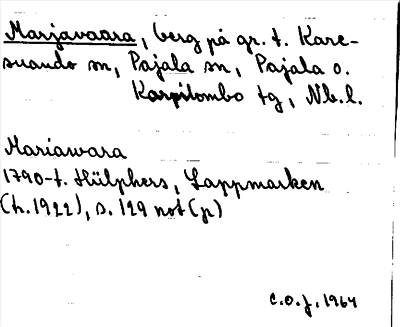 Marjavaara, berg på gr. t. Kare-
suando sn, Pajala sn, Pajala o.
Korpilombo tg, Nb.l.
Mariawara
1790-t. Hülphers, Lappmarken
(h. 1922), s. 129 not (p)
C.O.J. 1964